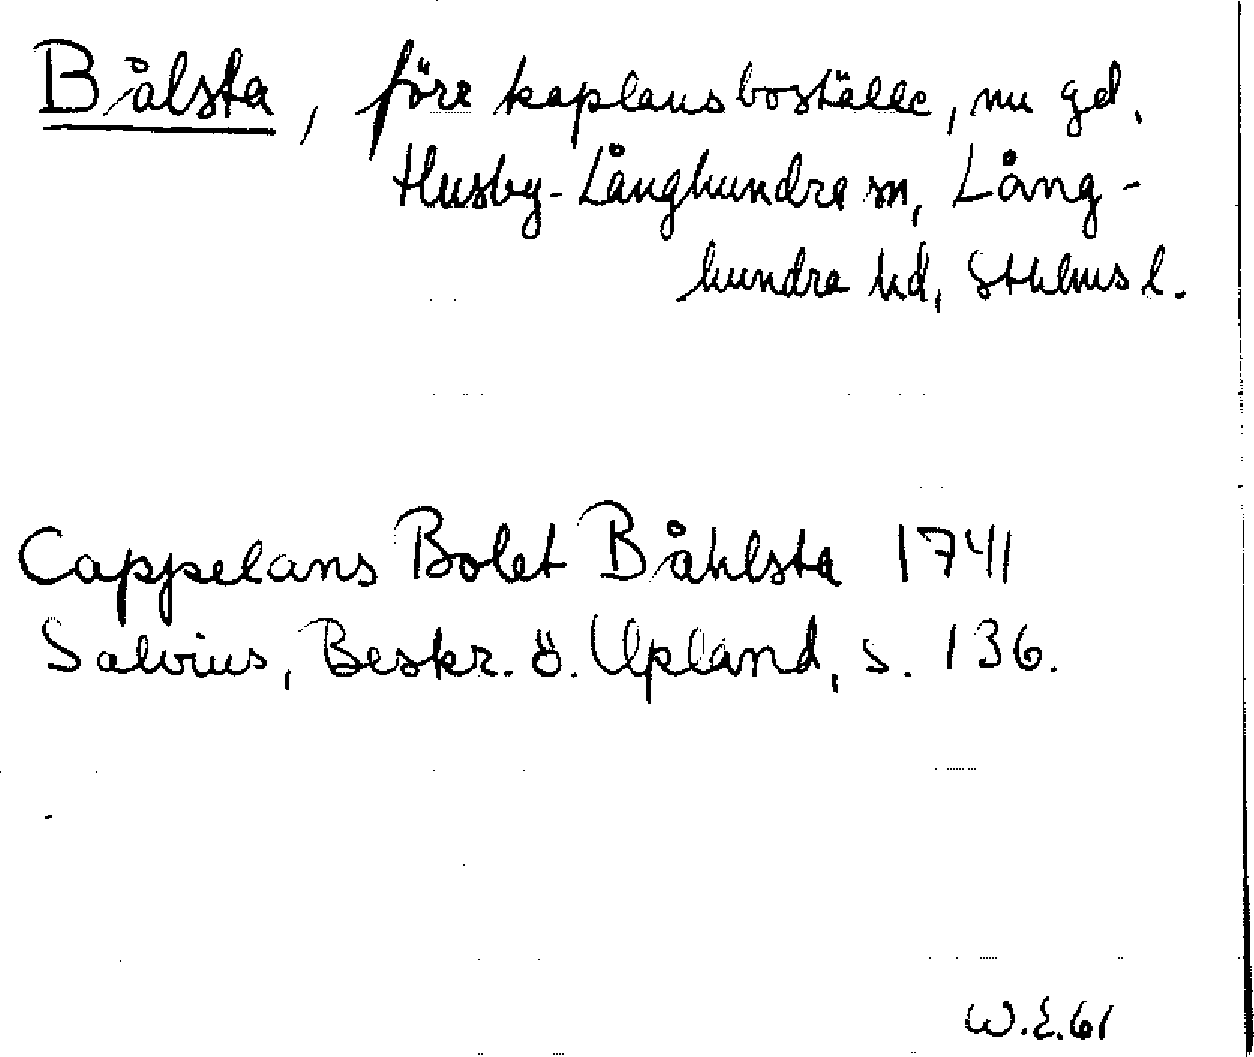 Bålsta, förr kaplansboställe, nu gd.
Husby-Långhundra sn, Lång-
hundra hd, Sthlms l.
Cappelans Bolet Båhlsta 1741
Salvius, Beskr. ö. Upland, s. 136.
W.E.61